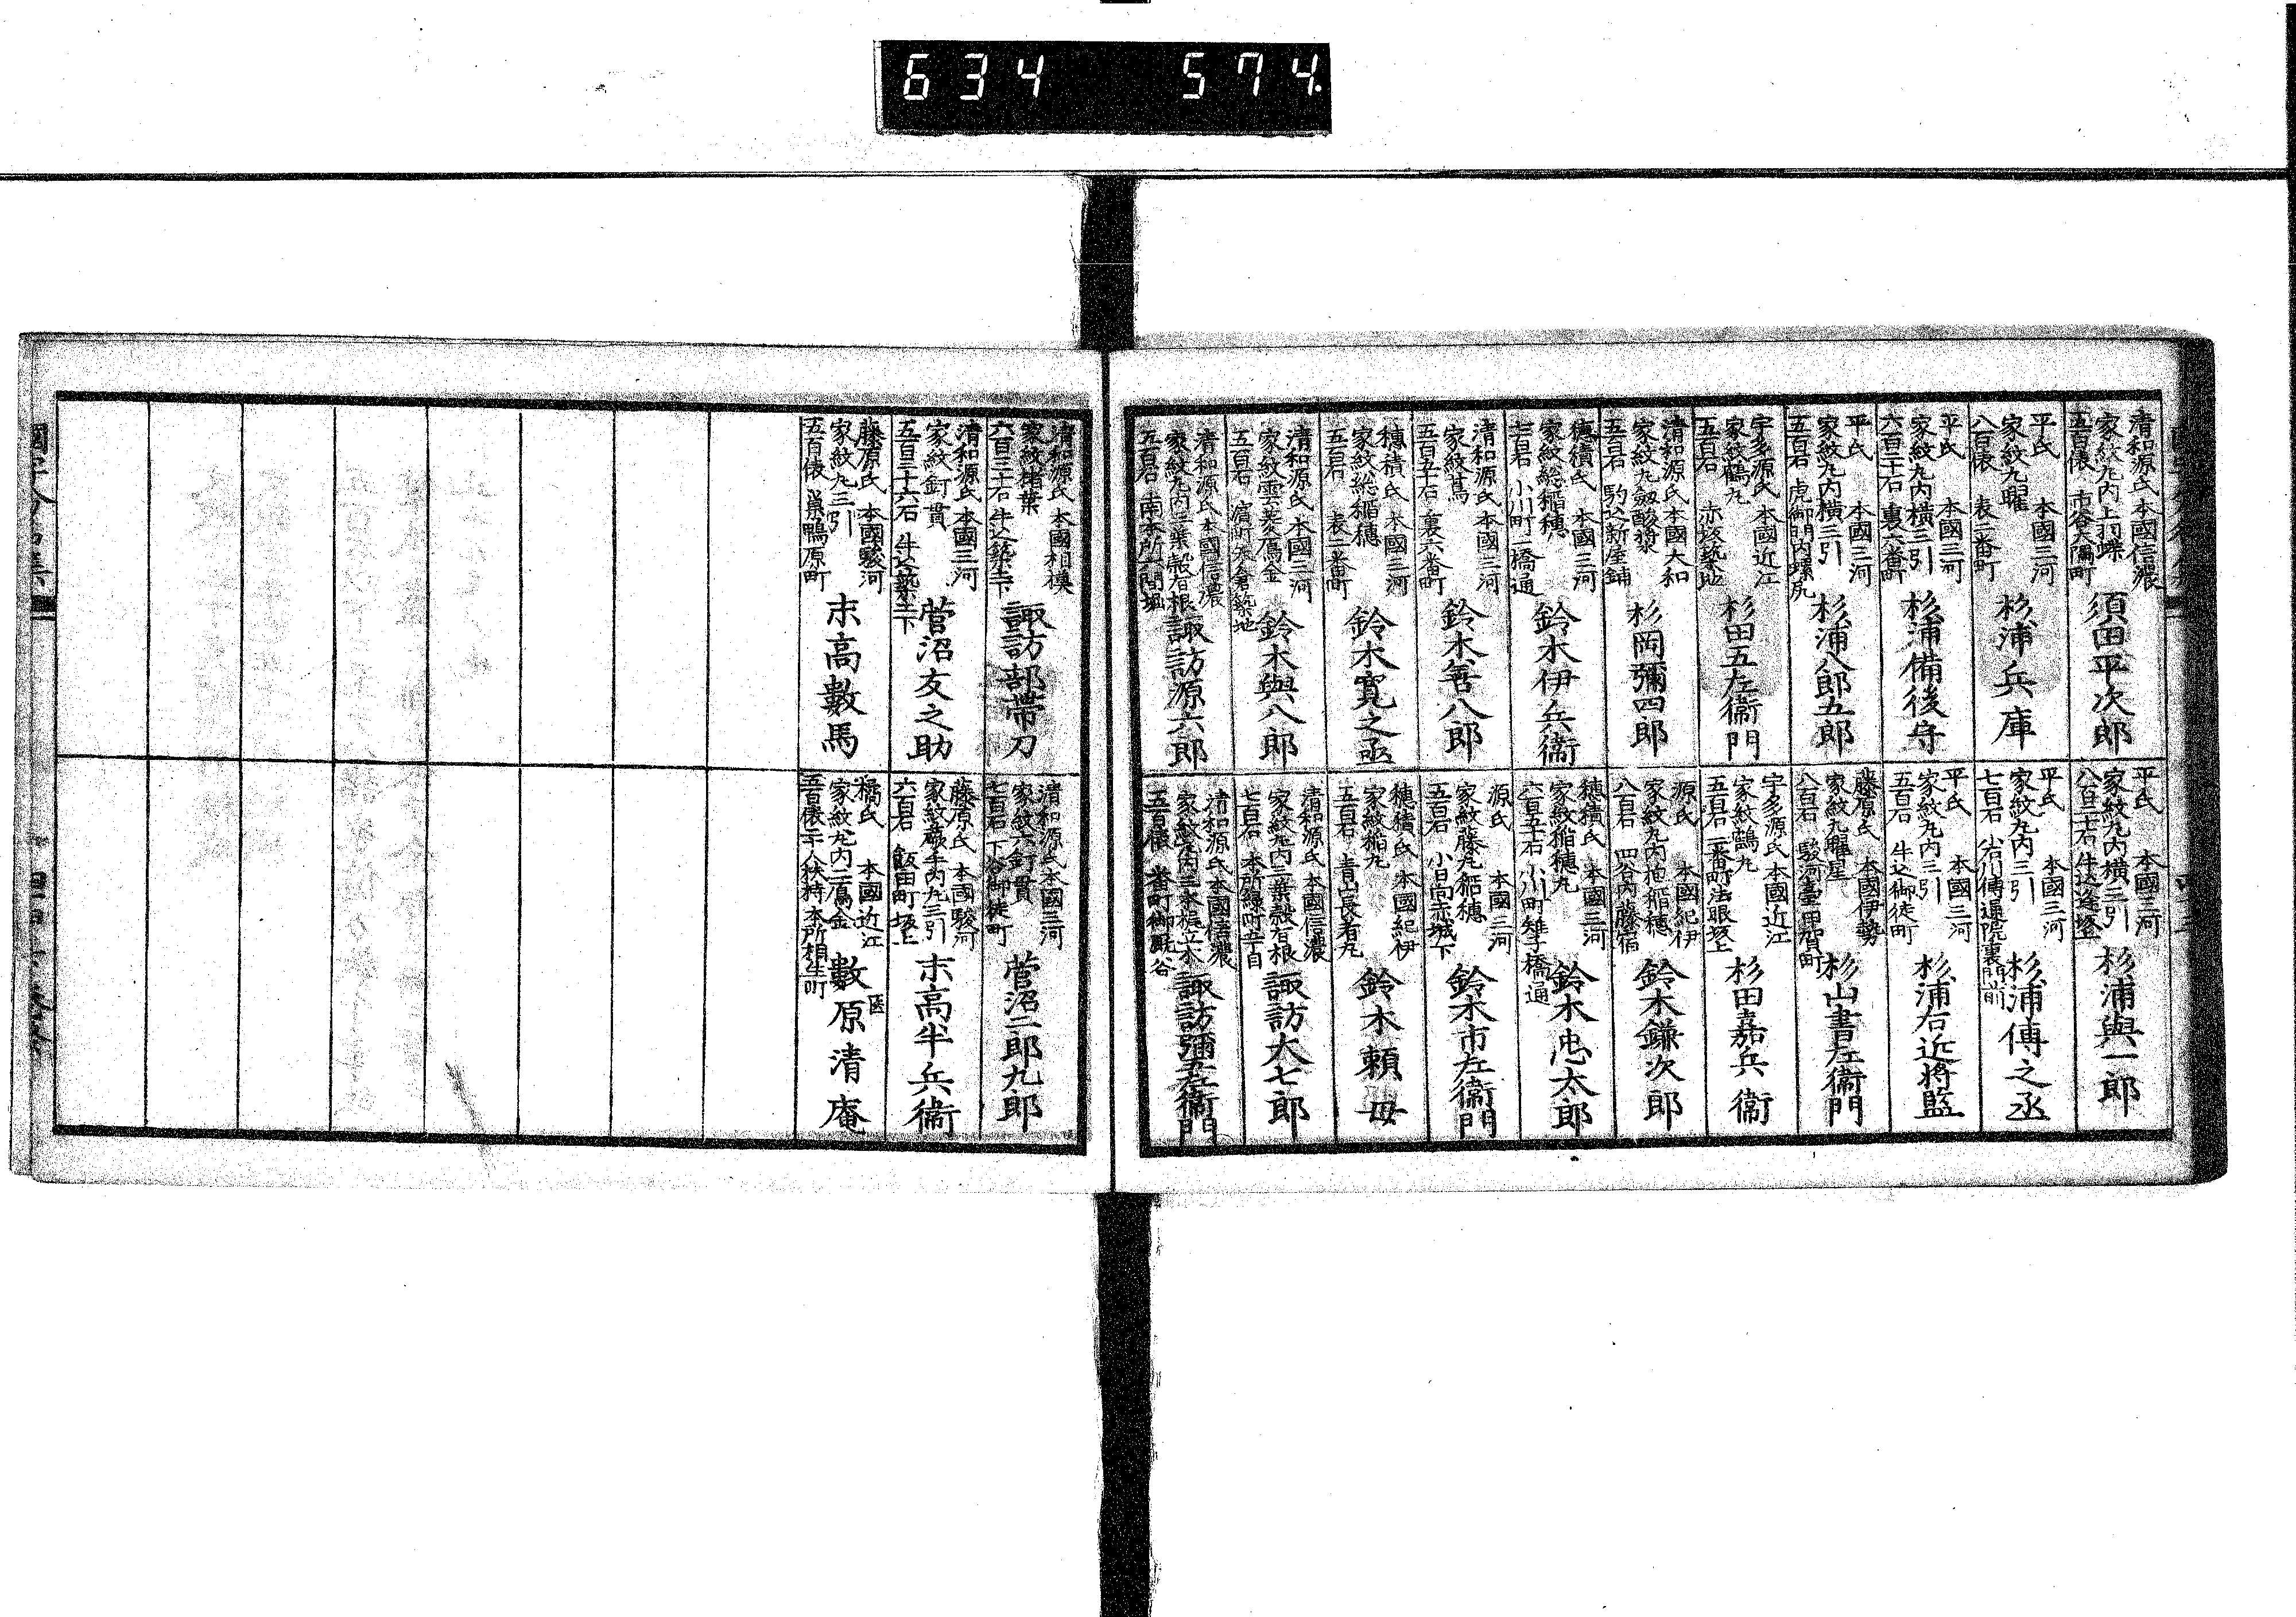 634 574.
清和源氏 本國信濃
家紋丸内上羽蝶
五百俵 市谷大隅町
須田平次郎
平氏 本國三河
家紋九曜
八百俵 表二番町
杉浦兵庫
平氏 本國三河
家紋丸内横三引
六百二十石 裏六番町
杉浦備後守
平氏 本國三河
家紋丸内横三引
五百石 虎御門内螺尻
杉浦八郎五郎
宇多源氏 本國近江
家紋鶴丸
五百石 赤坂築地
杉田五左衞門
清和源氏 本國大和
家紋丸劔酸漿
五百石 駒込新屋鋪
杉岡彌四郎
穂積氏 本國三河
家紋総稲穗
七百石 小川町一橋通
鈴木伊兵衞
清和源氏 本國三河
家紋蔦
五百五十石 裏六番町
鈴木善八郎
穗積氏 本國三河
家紋総稲穗
五百石 表二番町
鈴木寛之丞
清和源氏 本國三河
家紋雲菱鴈金
五百石 濵町朱倉築地
鈴木與八郎
清和源氏 本國信濃
家紋丸内三葉榖有根
五百石 南本所六間堀
諏訪源六郎
平氏 本國三河
家紋丸内横三引
杉浦與一郎
平氏 本國三河
家紋丸内三引
七百石 小石川傳通院裏門前
杉浦傳之丞
平氏 本國三河
家紋丸内三引
五百石 牛込御徒町
杉浦右近將監
藤原氏 本國伊勢
家紋九曜星
八百石 駿河臺甲賀町
杉山書左衞門
宇多源氏 本國近江
家紋鶴丸
五百石 二番町法眼坂上
杉田嘉兵衞
源氏 本國紀伊
家紋丸内抱稲穗
八百石 四谷内藤宿
鈴木鎌次郎
穗積氏 本國三河
家紋稲穗丸
六百五十石 小川町雉子橋通
鈴木忠太郎
源氏 本國三河
家紋藤丸稲穗
五百石 小日向赤城下
鈴木市左衞門
穗積氏 本國紀伊
家紋稲丸
五百石 青山長者丸
鈴木頼母
清和源氏 本國信濃
家紋丸内三葉榖有根
七百石 本所緑町五丁目
諏訪大七郎
清和源氏 本國信濃
家紋丸内三本梶立木
五百俵 番町御厩谷
諏訪彌五左衞門
清和源氏 本國相模
家紋楮葉
六百三十石 牛込築土下
諏訪部帶刀
清和源氏 本國三河
家紋釘貫
五百三十六石 牛込築土下
菅沼友之助
藤原氏 本國駿河
家紋丸三引
五百俵 巣鴨原町
末高數馬
清和源氏 本國三河
家紋六釘貫
七百石 下谷御徒町
菅沼二郎九郎
藤原氏 本國駿河
家紋蕨手内丸三引
六百石 飯田町坂上
末高半兵衞
橘氏 本國近江
家紋丸内二鴈金
五百俵二十人扶持 本所相生町
医
數原清庵